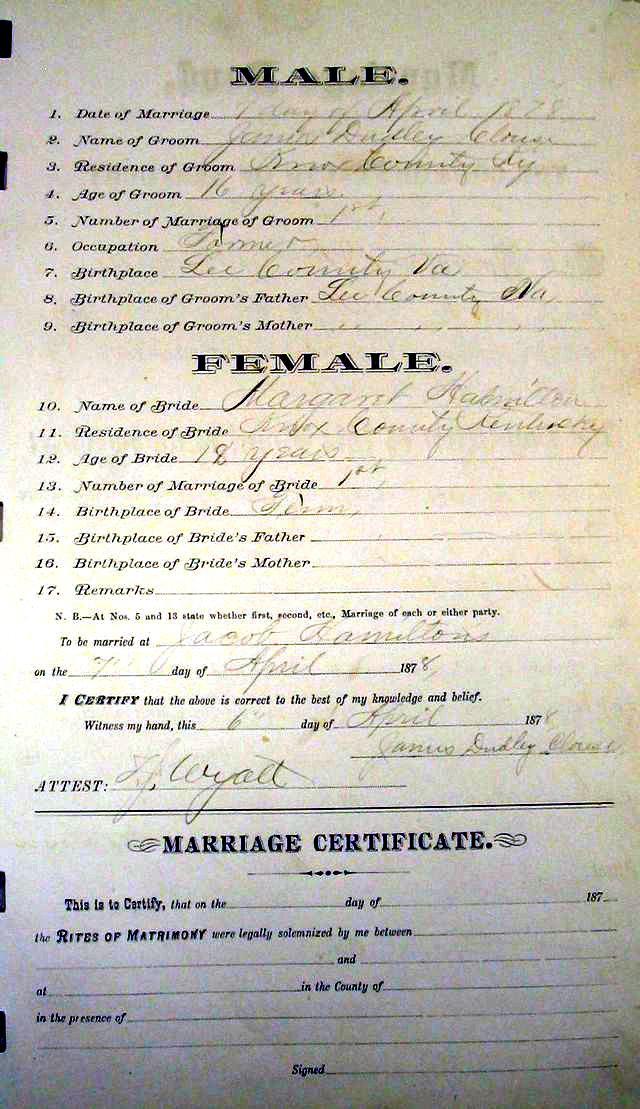 MALE.
1. Date of Marriage 7 day of April 1878
2. Name of Groom James Dudley Clouse
3. Residence of Groom Knox County Ky
4. Age of Groom 16 years
5. Number of Marriage of Groom 1st
6. Occupation Farmer
7. Birthplace Lee County Va
8. Birthplace of Groom's Father Lee County Va
9. Birthplace of Groom's Mother " " "
FEMALE.
10. Name of Bride Margaret Hamilton
11. Residence of Bride Knox County Kentucky
12. Age of Bride 18 years
13. Number of Marriage of Bride 1st
14. Birthplace of Bride Tenn,
15. Birthplace of Bride's Father
16. Birthplace of Bride's Mother
17. Remarks
N. B.—At Nos. 5 and 13 state whether first, second, etc., Marriage of each or either party.
To be married at Jacob Hamiltons
on the 7" day of April 1878,
I CERTIFY that the above is correct to the best of my knowledge and belief.
Witness my hand, this 6" day of April 1878
James Dudley Clouse
ATTEST: Wyatt
MARRIAGE CERTIFICATE.
This is to Certify, that on the day of 187
the RITES OF MATRIMONY were legally solemnized by me between
and
at in the County of
in the presence of
Signed